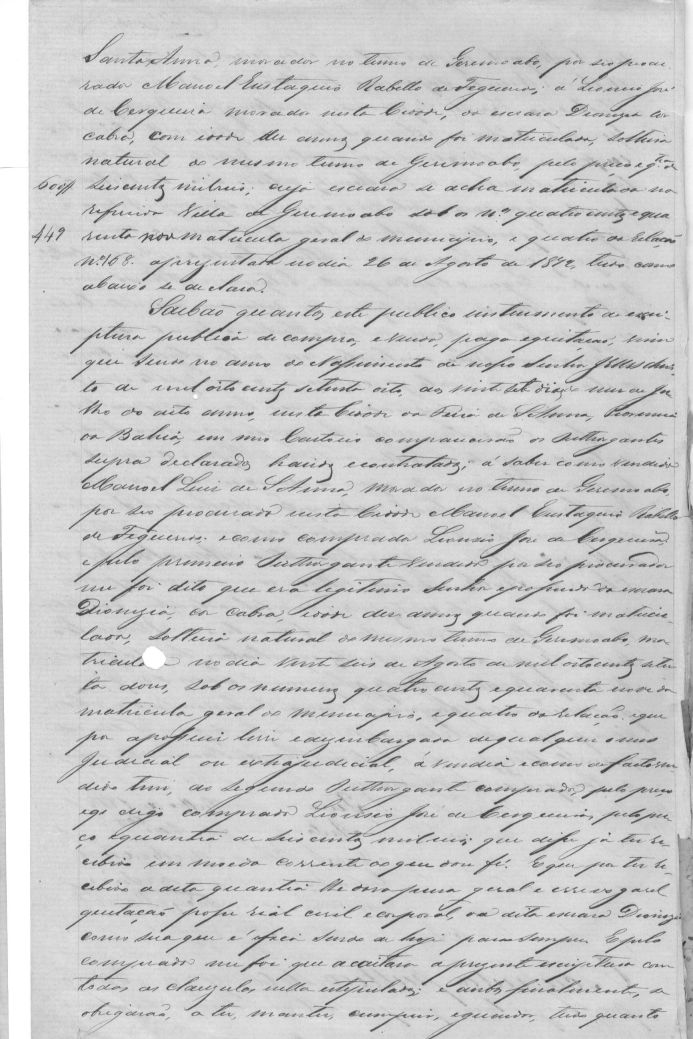 Santa Anna, morador no termo de Geremoabo, por seo procu-
rador Manoel Eustaquio Rabello de Figueiredo; á Leonsio José
de Cerqueira morador nesta Cidade, da escrava Dionizia cor
cabra, com idade dez annos quando foi matriculada, solteira
natural do mesmo termo de Geremoabo, pelo preço e qtia de
600$ Seiscentos mil reis; cuja escrava se acha matriculada na
referida Villa de Geremoabo sob os nos quatro centos e qua
449 renta nove matricula geral do municipio, e quatro da relação
nº 168. aprezentada no dia 26 de Agosto de 1872, tudo como
abaixo se declara.
Saibão quantos este publico instrumento de escri
ptura publica de compra, e venda, paga e quitação, virem
que sendo no anno do Nassimento de nosso Senhor JESUS Chris-
to de mil oito centos setenta oito, aos vinte sete dias do mez de Ju
lho do dito anno, nesta Cidade da Feira de S. Anna, Provincia
da Bahia, em meo Cartorio comparecerão os Outhorgantes
supra declarados havidos e contratados; á saber como vendedor
Manoel Luis de S. Anna, morador no termo de Geremoabo,
por seo procurador nesta Cidade Manoel Eustaquio Rabello
de Figueiredo: e como comprador Leonsio José de Cerqueira:
e pelo primeiro Outhorgante vendedor por seo procurador
me foi dito que era legitimo Senhor e possuidor da escrava
Dionizia, cor cabra idade dez annos quando foi matricu-
lada, solteira natural do mesmo termo de Geremoabo, ma-
triculada no dia vinte seis de Agosto de mil oito centos seten
ta dous, sob os numeros quatro centos e quarenta e nove da
matricula geral do municipio, e quatro da relação: e que
por a possuir livre e dezembargada de qual quer onus
Judicial ou extrajudicial, á vendia e como de facto ven-
dido tem, ao segundo Outhorgante comprador, pelo preço
e qe digo comprador Leonsio José de Cerqueira, pelo pre
ço e quantia de seiscentos mil reis; que disse já ter re
cebido em moeda corrente do que dou fé. E que por ter re-
cebido a dita quantia lhe dava plena geral e irrevogavel
quitação posse real civil e corporal, da dita escrava Dionizia
como sua que é e fica sendo de hoje para sempre. E pelo
comprador me foi que aceitava a prezente escriptura com
todas as clauzulas nella estipuladas; e ambos finalmente, se
obrigarão, a ter, manter, cumprir, e guardar, tudo quanto